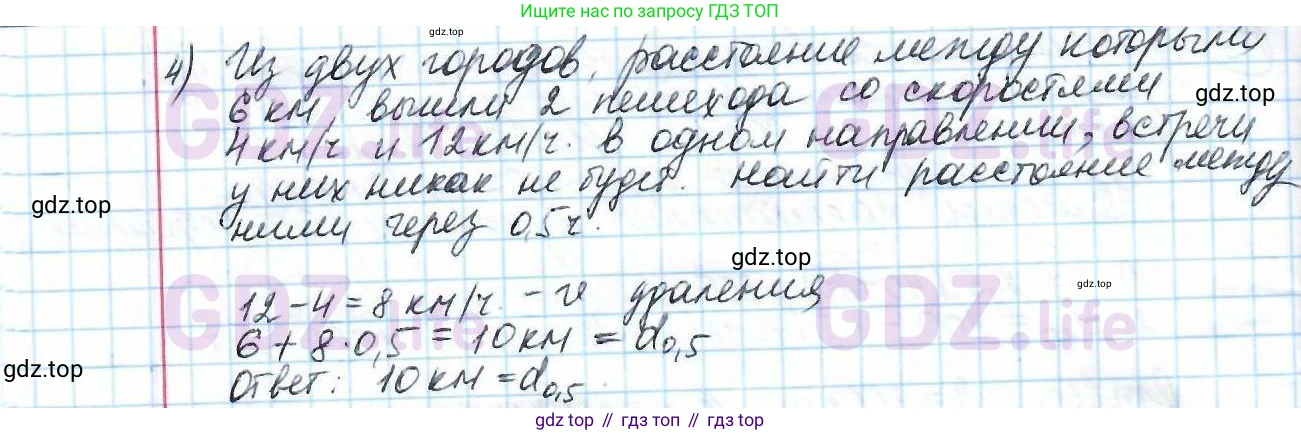 Ищите нас по запросу ГДЗ ТОП
gdz.top
4) Из двух городов, расстояние между которыми
6 км, вышли 2 пешехода со скоростями
gdz.top
4 км/ч и 12 км/ч. в одном направлении, встречи
у них никак не будет. Найти расстояние между
gdz.top
ними через 0,5 ч.
gdz.top
GDZ.life
GDZ.life
gdz.top
12 - 4 = 8 км/ч. - υ удаления
GDZ.life
GDZ.life
6 + 8 · 0,5 = 10 км = d0,5
gdz.top
Ответ: 10 км = d0,5
gdz top // гдз топ // gdz top